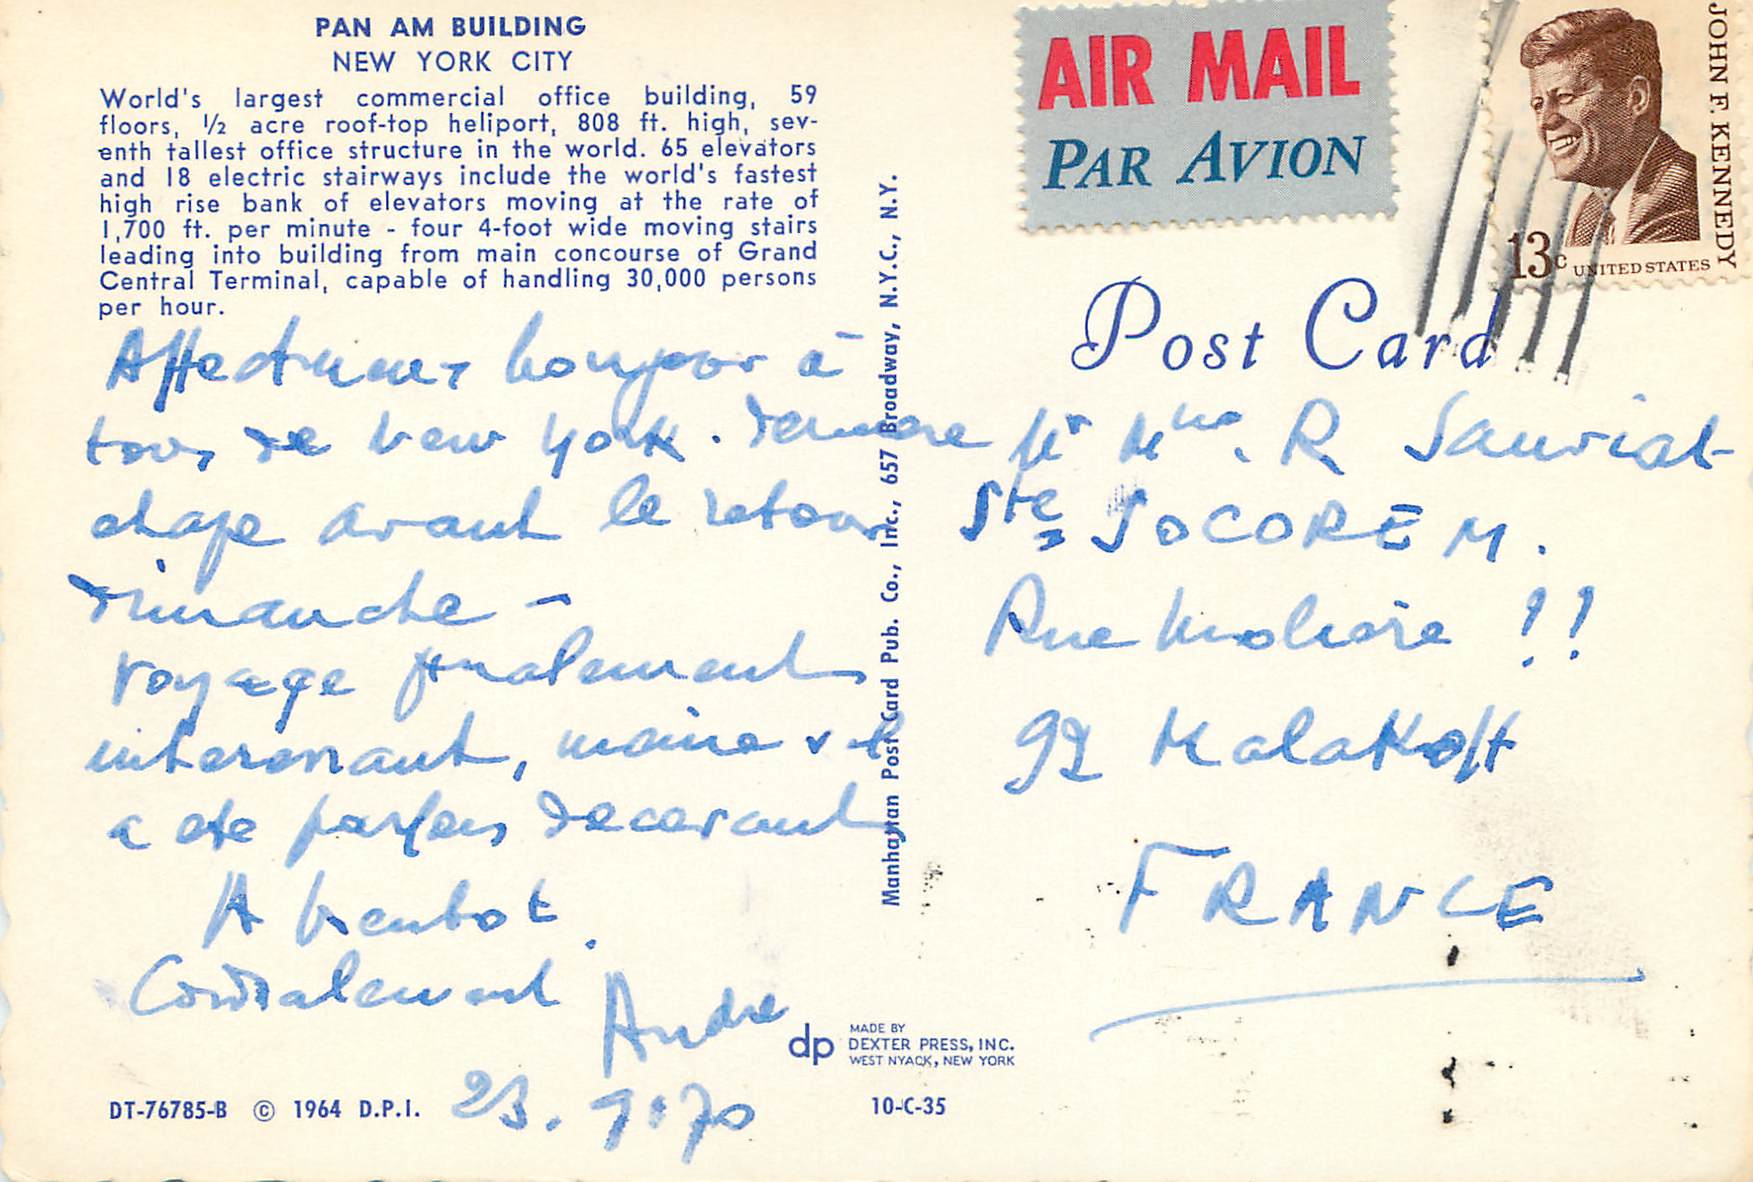 PAN AM BUILDING
NEW YORK CITY
World's largest commercial office building, 59
floors, ½ acre roof-top heliport, 808 ft. high, sev-
enth tallest office structure in the world. 65 elevators
and 18 electric stairways include the world's fastest
high rise bank of elevators moving at the rate of
1,700 ft. per minute - four 4-foot wide moving stairs
leading into building from main concourse of Grand
Central Terminal, capable of handling 30,000 persons
per hour.
Affectueux bonjour à
tous de New York. Dernière
etape avant le retour
dimanche -
Voyage finalement
interessant, même s'il
a ete parfois decevant
A bientot.
Cordialement
Andre
23.9.70
DT-76785-B © 1964 D.P.I.
Manhattan Post Card Pub. Co., Inc., 657 Broadway, N.Y.C., N.Y.
dp
MADE BY
DEXTER PRESS, INC.
WEST NYACK, NEW YORK
10-C-35
AIR MAIL
PAR AVION
JOHN F. KENNEDY
13c UNITED STATES
Post Card
Mr Mme. R Sauviat
Sté SOCOREM.
Rue Moliere !!
92 Malakoff
FRANCE